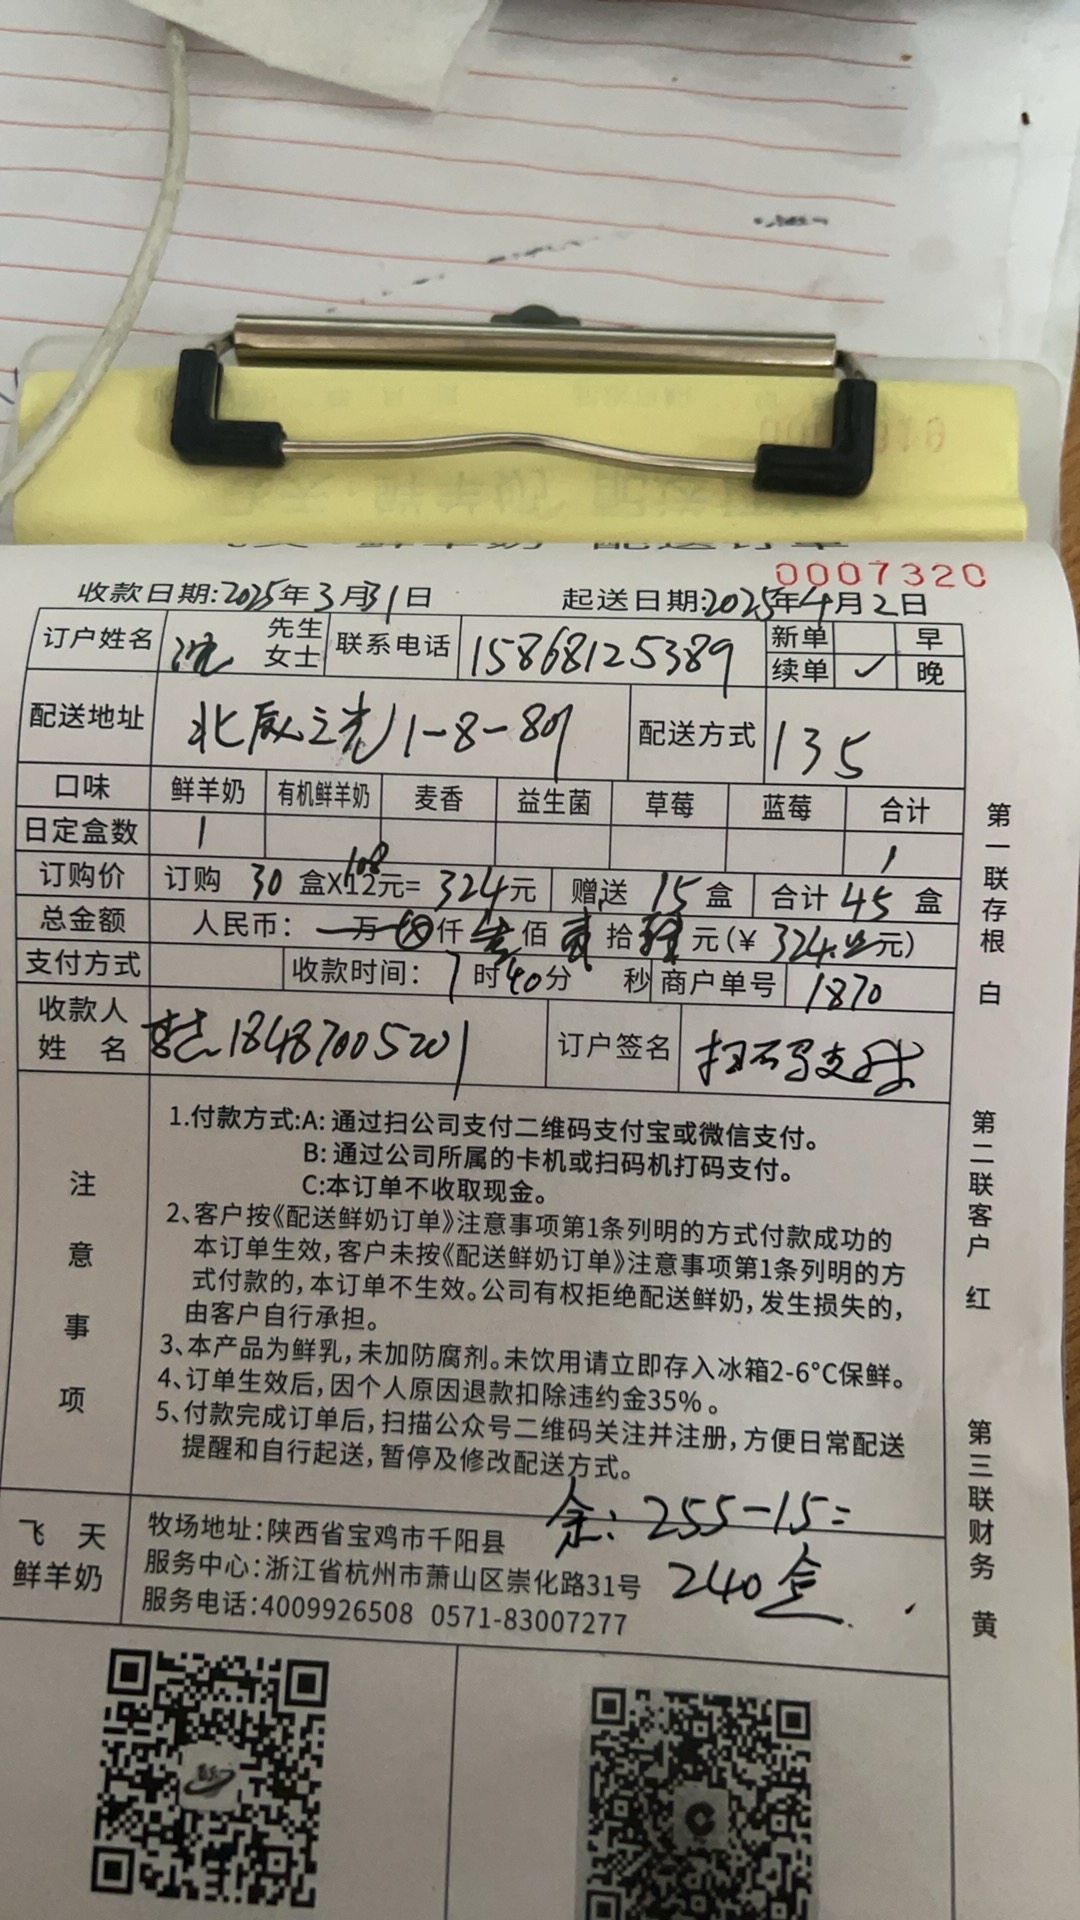 飞天·鲜羊奶 配送订单
0007320
收款日期:2025年3月31日 起送日期:2025年4月2日
订户姓名 沈 先生 女士 联系电话 15868125389 新单 早
续单 ✓ 晚
配送地址 北辰之光11-8-801 配送方式 135
口味 鲜羊奶 有机鲜羊奶 麦香 益生菌 草莓 蓝莓 合计
日定盒数 1 1
订购价 订购 30 盒X12元= 324元 赠送 15盒 合计 45 盒
10.8
总金额 人民币: 万 仟 佰 贰 拾 元(¥ 324.00元)
支付方式 收款时间: 7时40分 秒 商户单号 1870
收款人姓名 18487005201 订户签名 扫码支付
注意事项
1.付款方式:A: 通过扫公司支付二维码支付宝或微信支付。
B: 通过公司所属的卡机或扫码机打码支付。
C:本订单不收取现金。
2、客户按《配送鲜奶订单》注意事项第1条列明的方式付款成功的
本订单生效,客户未按《配送鲜奶订单》注意事项第1条列明的方
式付款的,本订单不生效。公司有权拒绝配送鲜奶,发生损失的,
由客户自行承担。
3、本产品为鲜乳,未加防腐剂。未饮用请立即存入冰箱2-6°C保鲜。
4、订单生效后,因个人原因退款扣除违约金35%。
5、付款完成订单后,扫描公众号二维码关注并注册,方便日常配送
提醒和自行起送,暂停及修改配送方式。
余: 255-15=
240盒
飞天
鲜羊奶
牧场地址:陕西省宝鸡市千阳县
服务中心:浙江省杭州市萧山区崇化路31号
服务电话:4009926508 0571-83007277
第一联存根 白
第二联客户 红
第三联财务 黄